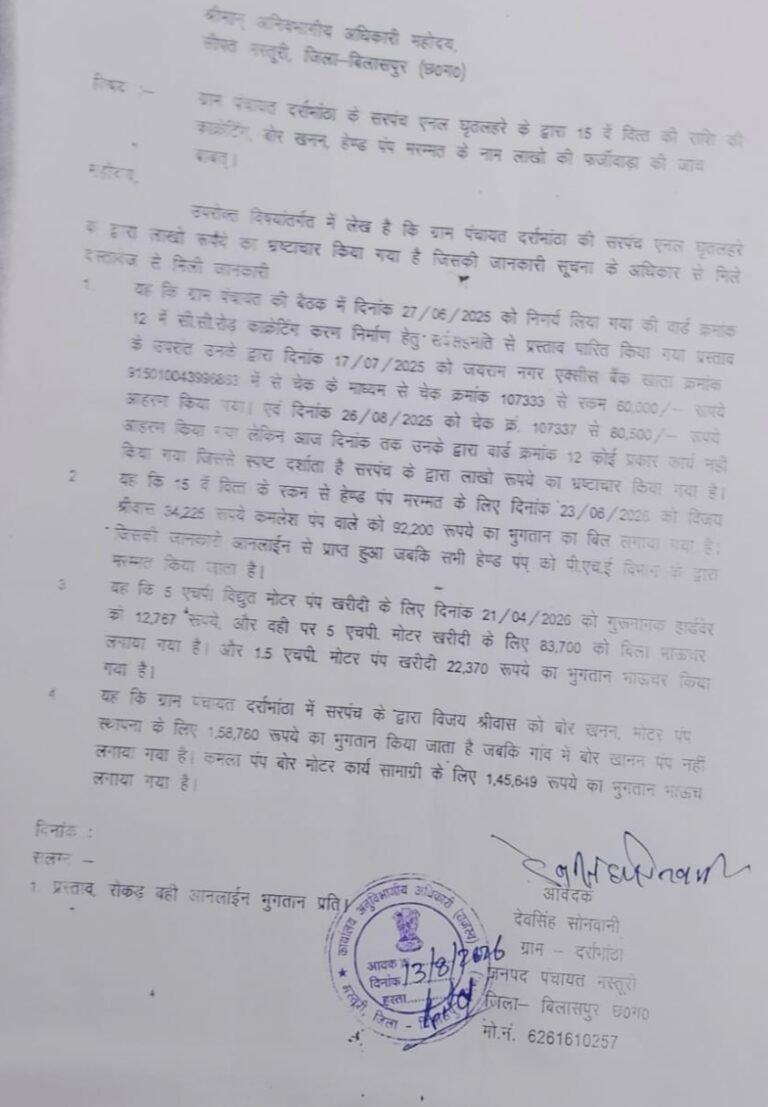 श्रीमान् अनुविभागीय अधिकारी महोदय,
सीपत मस्तूरी, जिला–बिलासपुर (छ०ग०)
विषय :– ग्राम पंचायत दर्राभांठा के सरपंच एनल घृतलहरे के द्वारा 15 वें वित्त की राशि की
कांक्रेटिंग, बोर खनन, हेण्ड पंप मरम्मत के नाम लाखो की फर्जीवाड़ा की जांच
बाबत्।
महोदय,
उपरोक्त विषयांतर्गत में लेख है कि ग्राम पंचायत दर्राभांठा की सरपंच एनल घृतलहरे
के द्वारा लाखो रूपैये का भ्रष्टाचार किया गया है जिसकी जानकारी सूचना के अधिकार से मिले
दस्तावेज से मिली जानकारी
1. यह कि ग्राम पंचायत की बैठक में दिनांक 27/06/2025 को निर्णय लिया गया की वार्ड क्रमांक
12 में सी.सी.रोड़ कांक्रेटिंग करण निर्माण हेतु सर्वसहमति से प्रस्ताव पारित किया गया प्रस्ताव
के उपरांत उनके द्वारा दिनांक 17/07/2025 को जयराम नगर एक्सीस बैंक खाता क्रमांक
915010043996863 में से चेक के माध्यम से चेक क्रमांक 107333 से रकम 60,000/– रूपये
आहरण किया गया। एवं दिनांक 26/08/2025 को चेक क्रं. 107337 से 60,500/– रूपये
आहरण किया गया लेकिन आज दिनांक तक उनके द्वारा वार्ड क्रमांक 12 कोई प्रकार कार्य नहीं
किया गया जिससे स्पष्ट दर्शाता है सरपंच के द्वारा लाखो रूपये का भ्रष्टाचार किया गया है।
2 यह कि 15 वें वित्त के रकम से हेण्ड पंप मरम्मत के लिए दिनांक 23/06/2026 को विजय
श्रीवास 34,225 रूपये कमलेश पंप वाले को 92,200 रूपये का भुगतान का बिल लगाया गया है।
जिसकी जानकारी आनलाईन से प्राप्त हुआ जबकि सभी हेण्ड पंप् को पी.एच.ई विभाग के द्वारा
मरम्मत किया जाता है।
3 यह कि 5 एचपी विद्युत मोटर पंप खरीदी के लिए दिनांक 21/04/2026 को गुरूनानक हार्डवेर
को 12,767 रूपये, और वही पर 5 एचपी. मोटर खरीदी के लिए 83,700 को बिला भाऊचर
लगाया गया है। और 1.5 एचपी. मोटर पंप खरीदी 22,370 रूपये का भुगतान भाऊचर किया
गया है।
4 यह कि ग्राम पंचायत दर्राभांठा में सरपंच के द्वारा विजय श्रीवास को बोर खनन, मोटर पंप
स्थापना के लिए 1,58,760 रूपये का भुगतान किया जाता है जबकि गांव में बोर खानन पंप नहीं
लगाया गया है। कमला पंप बोर मोटर कार्य सामाग्री के लिए 1,45,649 रूपये का भुगतान भाऊच
लगाया गया है।
दिनांक :
सलग्न –
1. प्रस्ताव, रोकड़ बही आनलाईन भुगतान प्रति।
आवेदक
देवसिंह सोनवानी
ग्राम – दर्राभांठा
जनपद पंचायत मस्तूरी
जिला– बिलासपुर छ०ग०
मो.नं. 6261610257
कार्यालय अनुविभागीय अधिकारी (राजस्व)
आवक
दिनांक 13/8/2026
हस्ता.......
मस्तूरी, जिला – बिलासपुर